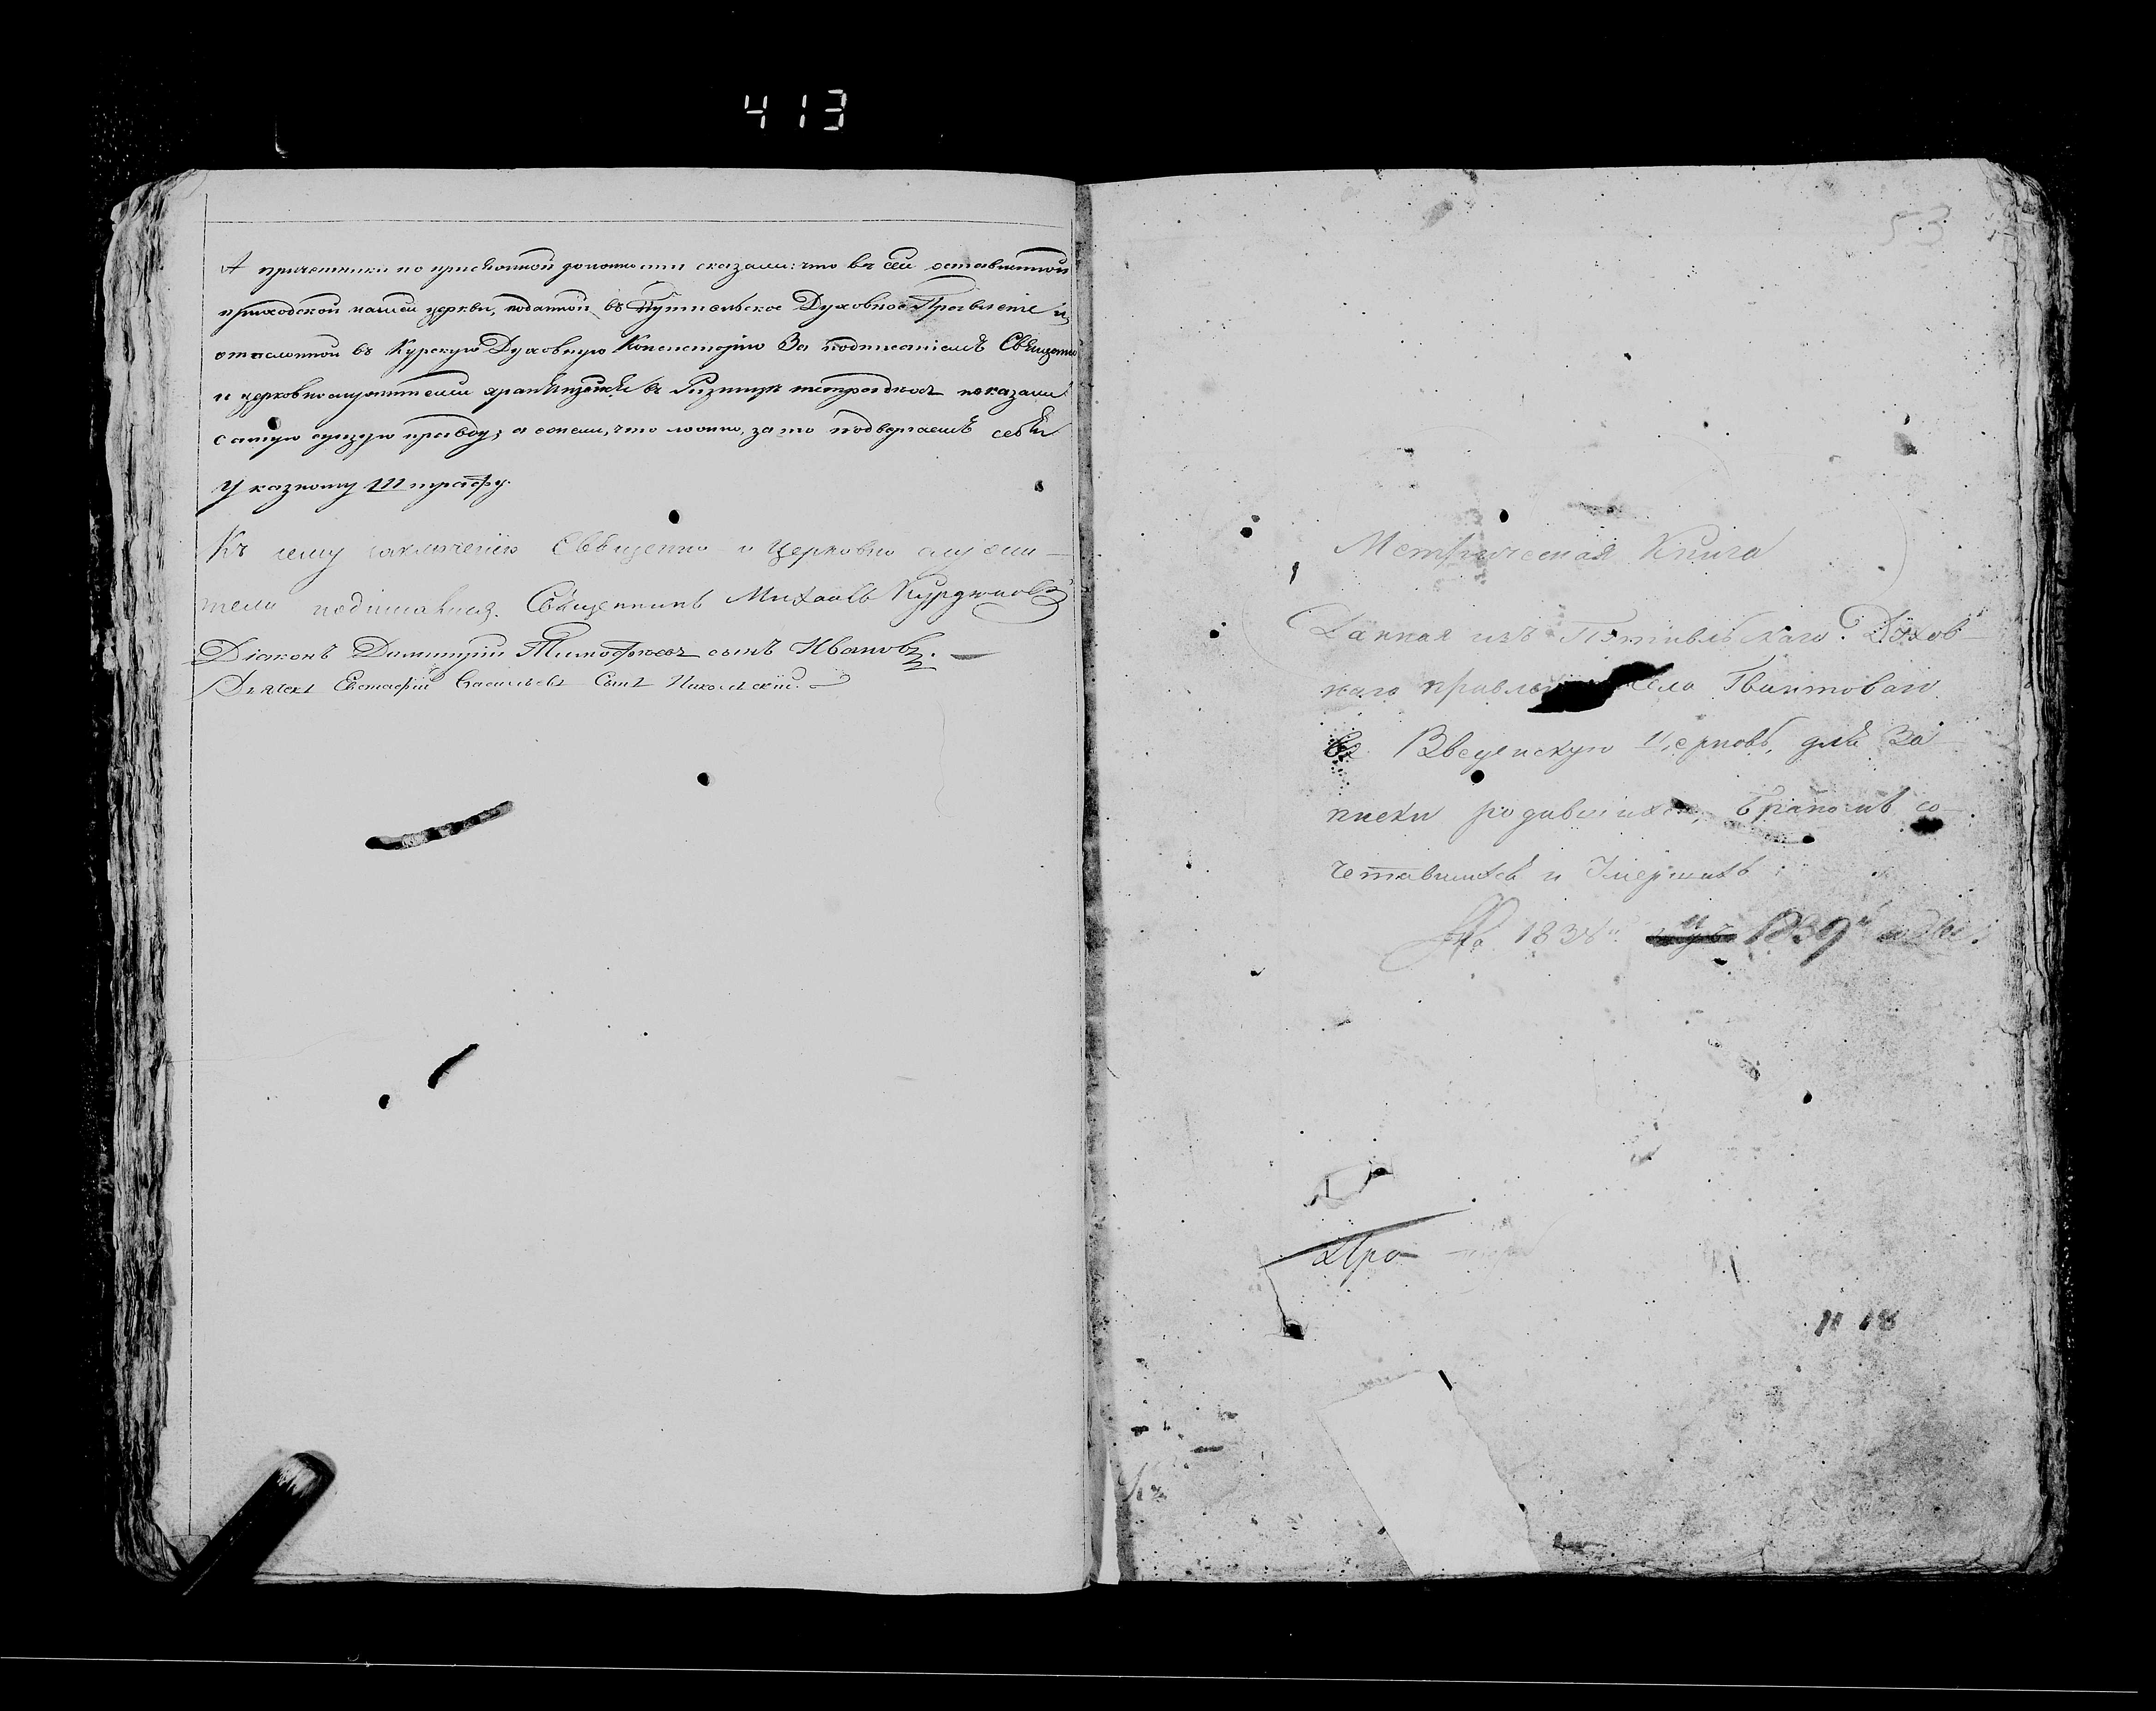 413
А причетники по присяжной должности сказали: что въ сей оставленной
приходской нашей церкви, поданной въ Путивльское Духовное Правленіе и
отосланной въ Курскую Духовную Консисторію За подписаніемъ Священно
и церковнослужителей хранящейся въ Ризницѣ показали
самую сущую правду; а если, что ложно, за то подвергаемъ себя
Указному Штрафу.
Къ сему заключенію Священно и Церковно служи-
тели подписались. Священникъ Михаилъ Курдюмовъ
Діаконъ Димитрій Тимофѣевъ сынъ Ивановъ.
Дьячекъ Евстафій Васильевъ Сынъ Никольскій.
53
Метрическая Книга
Данная изъ Путивльскаго Духов-
наго правле села Гвинтоваго
въ Введенскую Церковь, для За
писки родившихся, бракомъ со-
четавшихся и Умершихъ
На 1838й и 1839й годы.
18